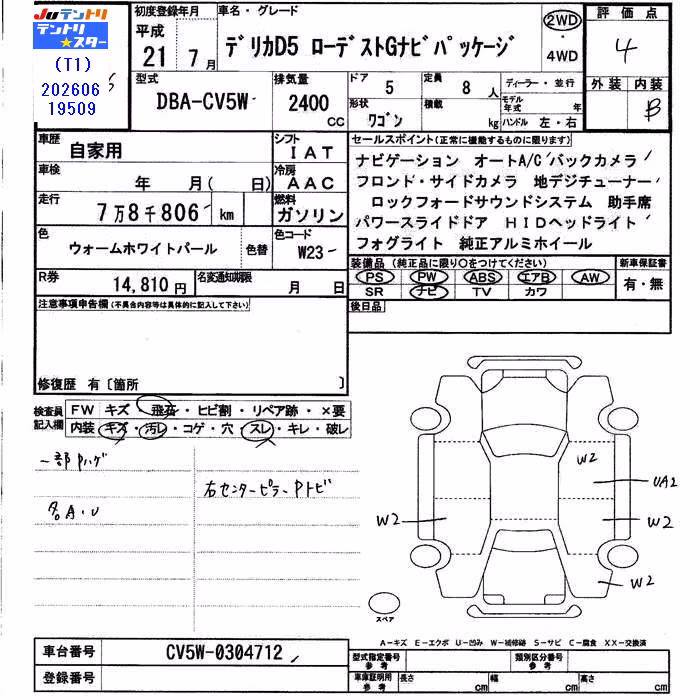 Ju テントリ
テントリ
★スター
(T1)
202606
19509
初度登録年月
平成
21年 7月
車名・グレード
デリカD5 ローデストGナビパッケージ
2WD
・
4WD
評価点
4
外装 内装
B
型式
DBA-CV5W
排気量
2400
CC
ドア
5
定員
8人
形状
ワゴン
積載
kg
ディーラー・並行
モデル年式 年
ハンドル 左・右
車歴
自家用
シフト
IAT
車検
年 月( 日)
冷房
AAC
走行
7万8千806 km
燃料
ガソリン
色
ウォームホワイトパール
色替
色コード
W23
R券
14,810円
名変通知期限
月 日
セールスポイント(正常に機能するものに限ります)
ナビゲーション オートA/C バックカメラ
フロント・サイドカメラ 地デジチューナー
ロックフォードサウンドシステム 助手席
パワースライドドア HIDヘッドライト
フォグライト 純正アルミホイール
装備品(純正品に限り○をつけてください)
PS PW ABS エアB AW
SR ナビ TV カワ
新車保証書
有・無
後日品
注意事項申告欄(不具合内容等は具体的に記入して下さい)
修復歴 有〔箇所 〕
検査員
記入欄
FW キズ・飛石・ヒビ割・リペア跡・×要
内装 キズ・汚レ・コゲ・穴・スレ・キレ・破レ
一部Pハゲ
右センターピラーPトビ
各A・U
W2
UA2
W2
W2
W2
スペア
A-キズ E-エクボ U-凹み W-補修跡 S-サビ C-腐食 XX-交換済
車台番号
CV5W-0304712
登録番号
型式指定番号
参考
類別区分番号
参考
車庫証明用
参考
長さ cm 幅 cm 高さ cm